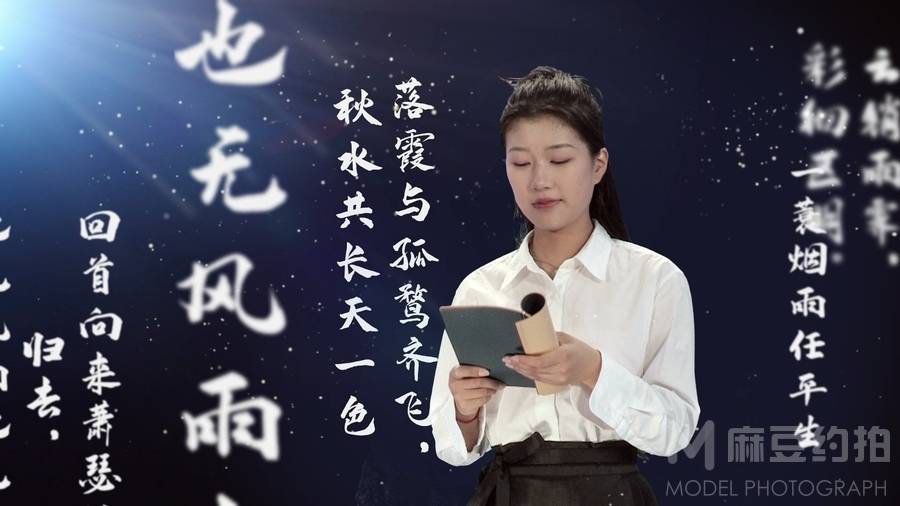 云销雨霁，
彩彻区明
一蓑烟雨任平生
落霞与孤鹜齐飞，
秋水共长天一色
也无风雨
回首向来萧瑟
归去，
麻豆约拍
MODEL PHOTOGRAPH